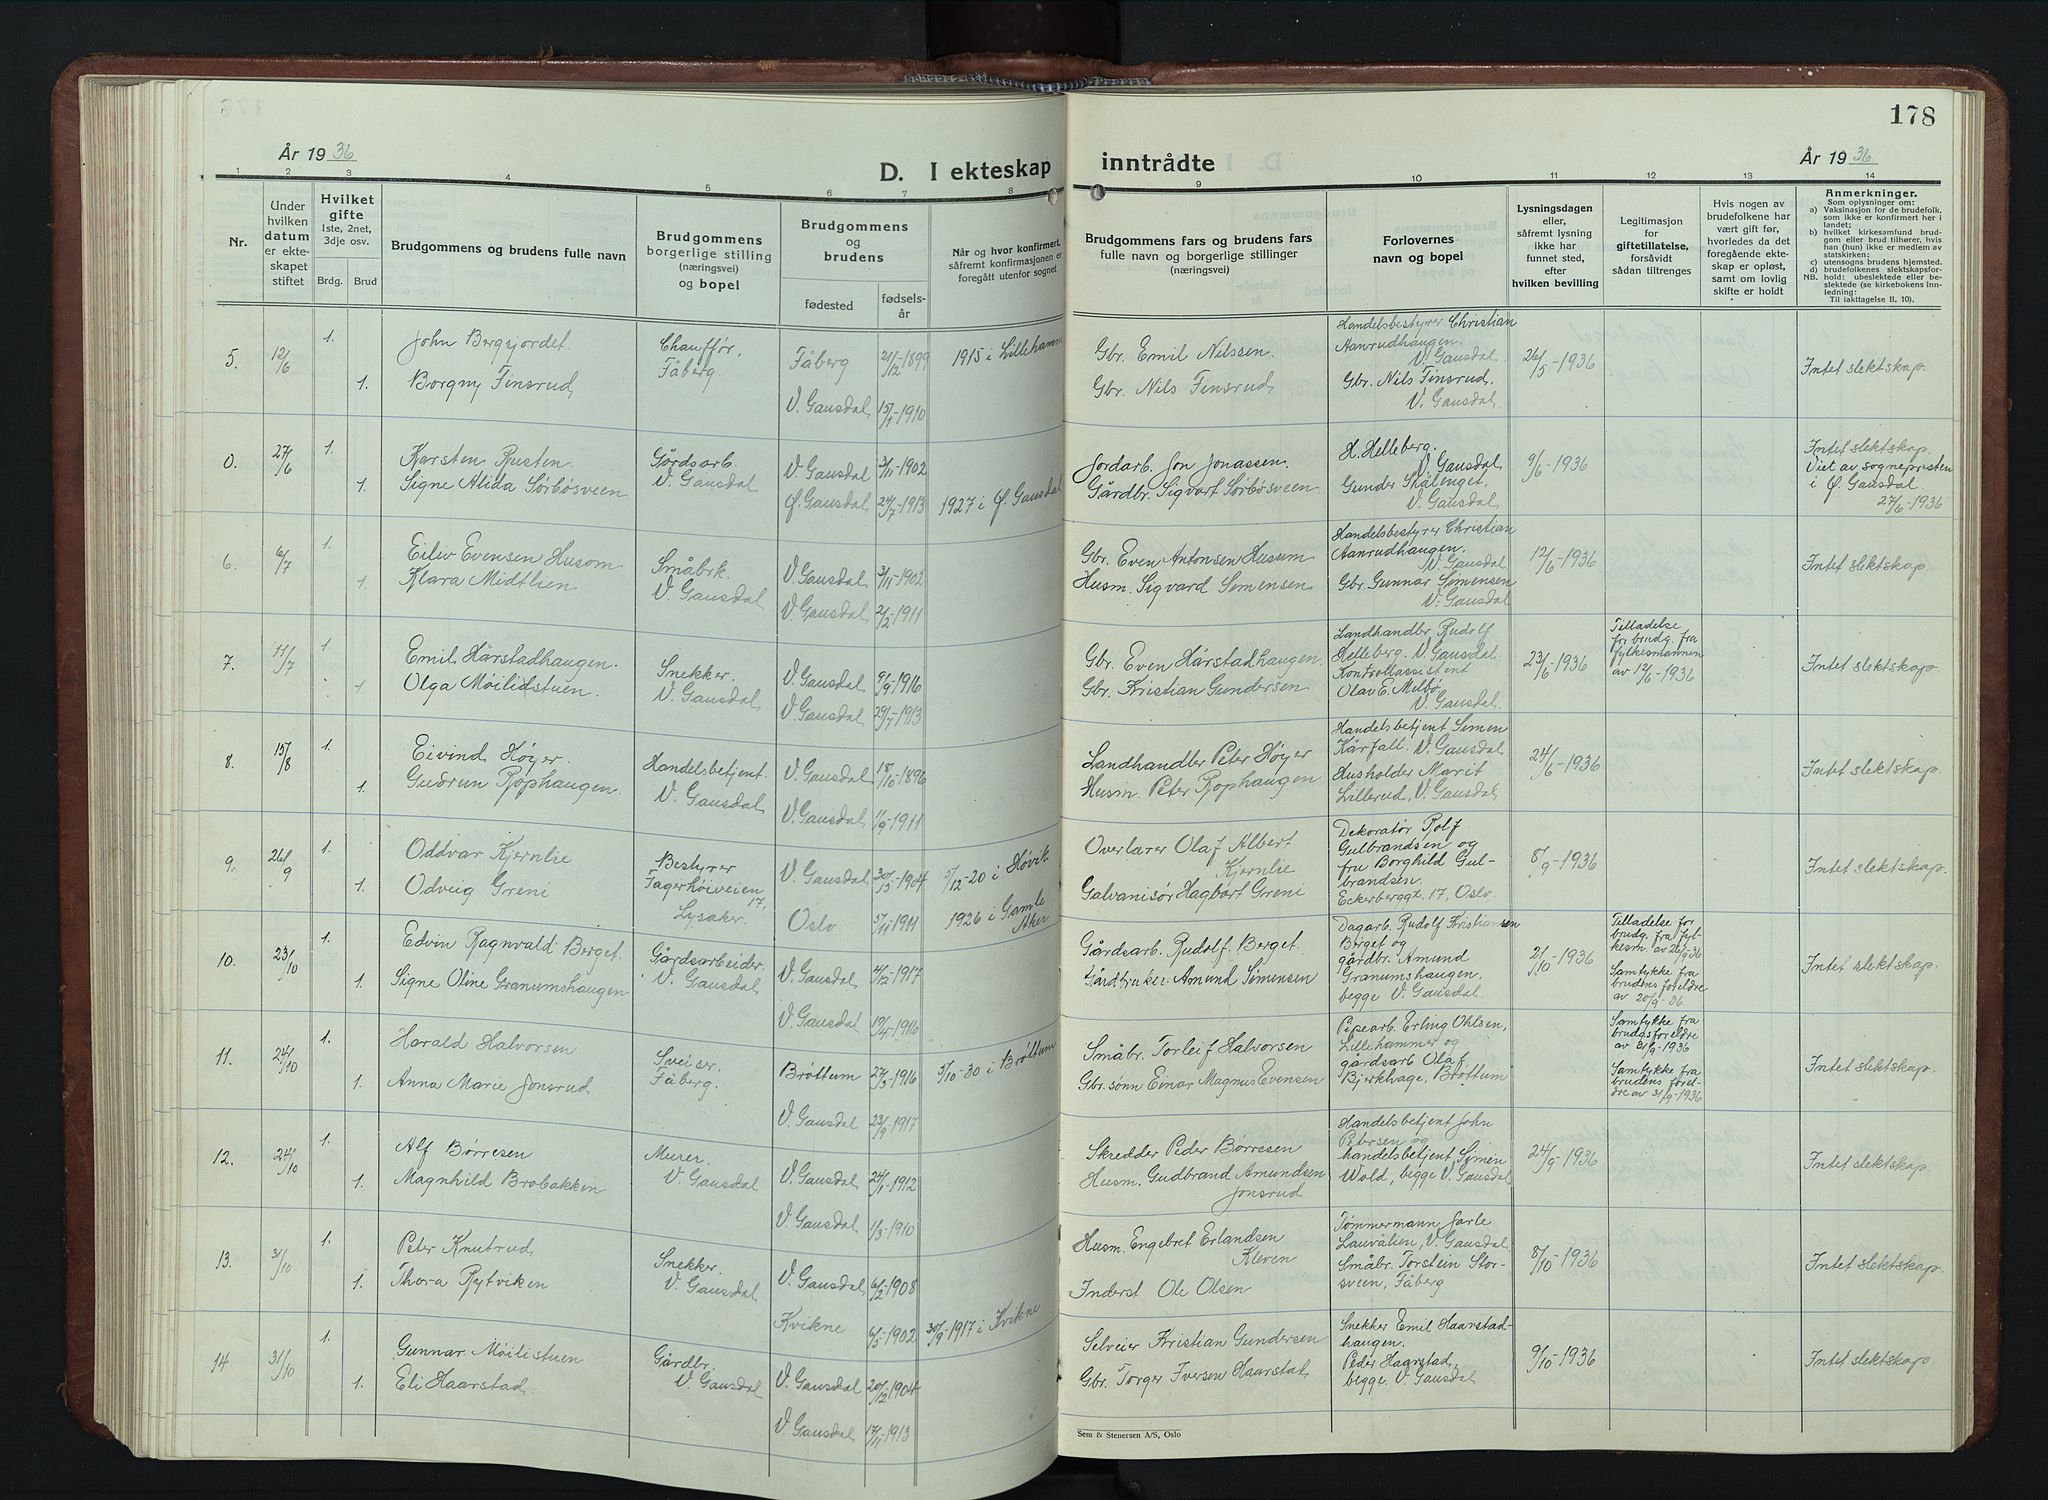 178
År 1936
D. I ekteskap inntrådte
År 1936
1 2 3 4 5 6 7 8 9 10 11 12 13 14
Nr.
Under
hvilken
datum
er ekte-
skapet
stiftet
Hvilket
gifte
1ste, 2net,
3dje osv.
Brdg. Brud
Brudgommens og brudens fulle navn
Brudgommens
borgerlige stilling
(næringsvei)
og bopel
Brudgommens
og
brudens
fødested
fødsels-
år
Når og hvor konfirmert,
såfremt konfirmasjonen er
foregått utenfor sognet
Brudgommens fars og brudens fars
fulle navn og borgerlige stillinger
(næringsvei)
Forlovernes
navn og bopel
Lysningsdagen
eller,
såfremt lysning
ikke har
funnet sted,
efter
hvilken bevilling
Legitimasjon
for
giftetillatelse,
forsåvidt
sådan tiltrenges
Hvis nogen av
brudefolkene har
vært gift før,
hvorledes da det
foregående ekte-
skap er opløst,
samt om lovlig
skifte er holdt
Anmerkninger.
Som oplysninger om:
a) Vaksinasjon for de brudefolk,
som ikke er konfirmert her i
landet;
b) hvilket kirkesamfund brud-
gom eller brud tilhører, hvis
han (hun) ikke er medlem av
statskirken;
c) utensogns brudens hjemsted.
d) brudefolkenes slektskapsfor-
NB. hold: ubeslektede eller be-
slektede (se kirkebokens inn-
ledning:
Til iakttagelse II. 10).
5. 12/6 1. John Bergsjordet.
1. Borgny Finsrud,
Chauffør,
Fåberg.
Fåberg 21/12-1899
V. Gausdal 15/1-1910
1915 i Lilleham
Gbr. Emil Nilssen.
Gbr. Nils Finsrud,
Handelsbestyrer Christian
Aanrudhaugen.
V. Gausdal
Gbr. Nils Finsrud,
V. Gausdal.
26/5-1936
Intet slektskap.
0. 27/6 1. Karsten Rusten.
1. Signe Alida Sørbøsveen
Gårdsarb.
V. Gausdal
V. Gausdal 3/11-1902
Ø. Gausdal 24/7-1913
1927 i Ø. Gausdal
Jordarb. Jon Jonassen.
Gårdbr. Sigvart Sørbøsveen
H. Helleberg.
V. Gausdal
Gunder Skålenget,
V. Gausdal
9/6-1936
Intet slektskap.
Viet av sognepresten
i Ø. Gausdal
27/6-1936
6. 6/7 1. Eiliv Evensen Husom
1. Klara Midtlien
Småbrk.
V. Gausdal
V. Gausdal 3/11-1902
V. Gausdal 2/2-1911
Gbr. Even Antonsen Husum
Husm. Sigvard Simensen
Handelsbestyrer Christian
Aanrudhaugen.
V. Gausdal
Gbr. Gunnar Simensen
V. Gausdal
12/6-1936
Intet slektskap.
7. 11/7 1. Emil Hårstadhaugen.
1. Olga Møilidstuen.
Snekker.
V. Gausdal
V. Gausdal 9/9-1916
V. Gausdal 29/7-1913
Gbr. Even Hårstadhaugen.
Gbr. Kristian Gundersen
Landhandler Rudolf
Helleberg. V. Gausdal.
Kontrollassistent
Olav E. Melbø,
V. Gausdal.
23/6-1936
Tilladelse
for brudg. fra
fylkesmannen
av 12/6-1936
Intet slektskap.
8. 15/8 1. Eivind Høyer.
1. Gudrun Rophaugen.
Handelsbetjent.
V. Gausdal
V. Gausdal 18/10-1896
V. Gausdal 1/9-1911
Landhandler Peter Høyer
Husm. Peter Rophaugen
Handelsbetjent Simen
Kårfall. V. Gausdal
Husholder Marit
Lillerud, V. Gausdal
24/6-1936
Intet slektskap.
9. 26/9 1. Oddvar Kjernlie
1. Odveig Greni
Bestyrer
Fagerhøiveien
17,
Lysaker.
V. Gausdal 30/5-1904
Oslo 5/11-1911
5/12-20 i Høvik
1926 i Gamle
Aker
Overlærer Olaf Albert
Kjernlie
Galvanisør Hagbart Greni
Dekoratør Rolf
Gulbrandsen og
fru Borghild Gul-
brandsen.
Eckerbergg. 17, Oslo.
8/9-1936
Intet slektskap.
10. 23/10 1. Edvin Ragnvald Berget.
1. Signe Oline Granumshaugen
Gårdsarbeider.
V. Gausdal
V. Gausdal 4/12-1917
V. Gausdal 19/4-1916
Gårdsarb. Rudolf Berget.
Gårdbruker Amund Simensen
Dagarb. Rudolf Kristiansen
Berget og
gårdbr. Amund
Granumshaugen,
begge V. Gausdal.
2/10-1936
Tilladelse for
brudg. fra fyl-
kesm. av 26/9-36
Samtykke fra
brudens foreldre
av 20/9-36
Intet slektskap.
11. 24/10 1. Harald Halvorsen
1. Anna Marie Jonsrud
Sveiser.
Fåberg.
Brøttum 27/3-1916
V. Gausdal 23/9-1917
5/10-30 i Brøttum
Småbr. Torleif Halvorsen
Gbr. sønn Einar Magnus Evensen
Pipearb. Erling Ohlsen,
Lillehammer og
gårdsarb Olaf
Bjerkhage, Brøttum
Samtykke fra
brudgs foreldre
av 31/9-1936
Samtykke fra
brudens forel-
dre av 31/9-1936
Intet slektskap.
12. 24/10 1. Alf Børresen
1. Magnhild Brobakken
Murer.
V. Gausdal
V. Gausdal 24/1-1912
V. Gausdal 1/3-1910
Skredder Peder Børresen
Husm. Gudbrand Amundsen
Jonsrud
Handelsbetjent John
Petersen og
handelsbetjent Simen
Wold, begge V. Gausdal
24/9-1936
Intet slektskap.
13. 31/10 1. Peter Knutrud
1. Thora Rytviken
Snekker.
V. Gausdal
V. Gausdal 6/2-1908
Kvikne 6/5-1902
30/9-1917 i Kvikne
Husm. Engebret Erlandsen
Kleven
Inderst Ole Olsen
Tømmermann Jarle
Lauvålien, V. Gausdal.
Småbr. Torstein Stor-
sveen, Fåberg
8/10-1936
Intet slektskap.
14 31/10 1. Gunnar Møilistuen
1. Eli Haarstad.
Gårdbr.
V. Gausdal
V. Gausdal 20/12-1904
V. Gausdal 17/11-1913
Selveier Kristian Gundersen
Gbr. Torger Iversen Haarstad
Snekker Emil Haarstad-
haugen.
Peder Haarstad,
begge V. Gausdal
9/10-1936
Intet slektskap
Sem & Stenersen A/S, Oslo